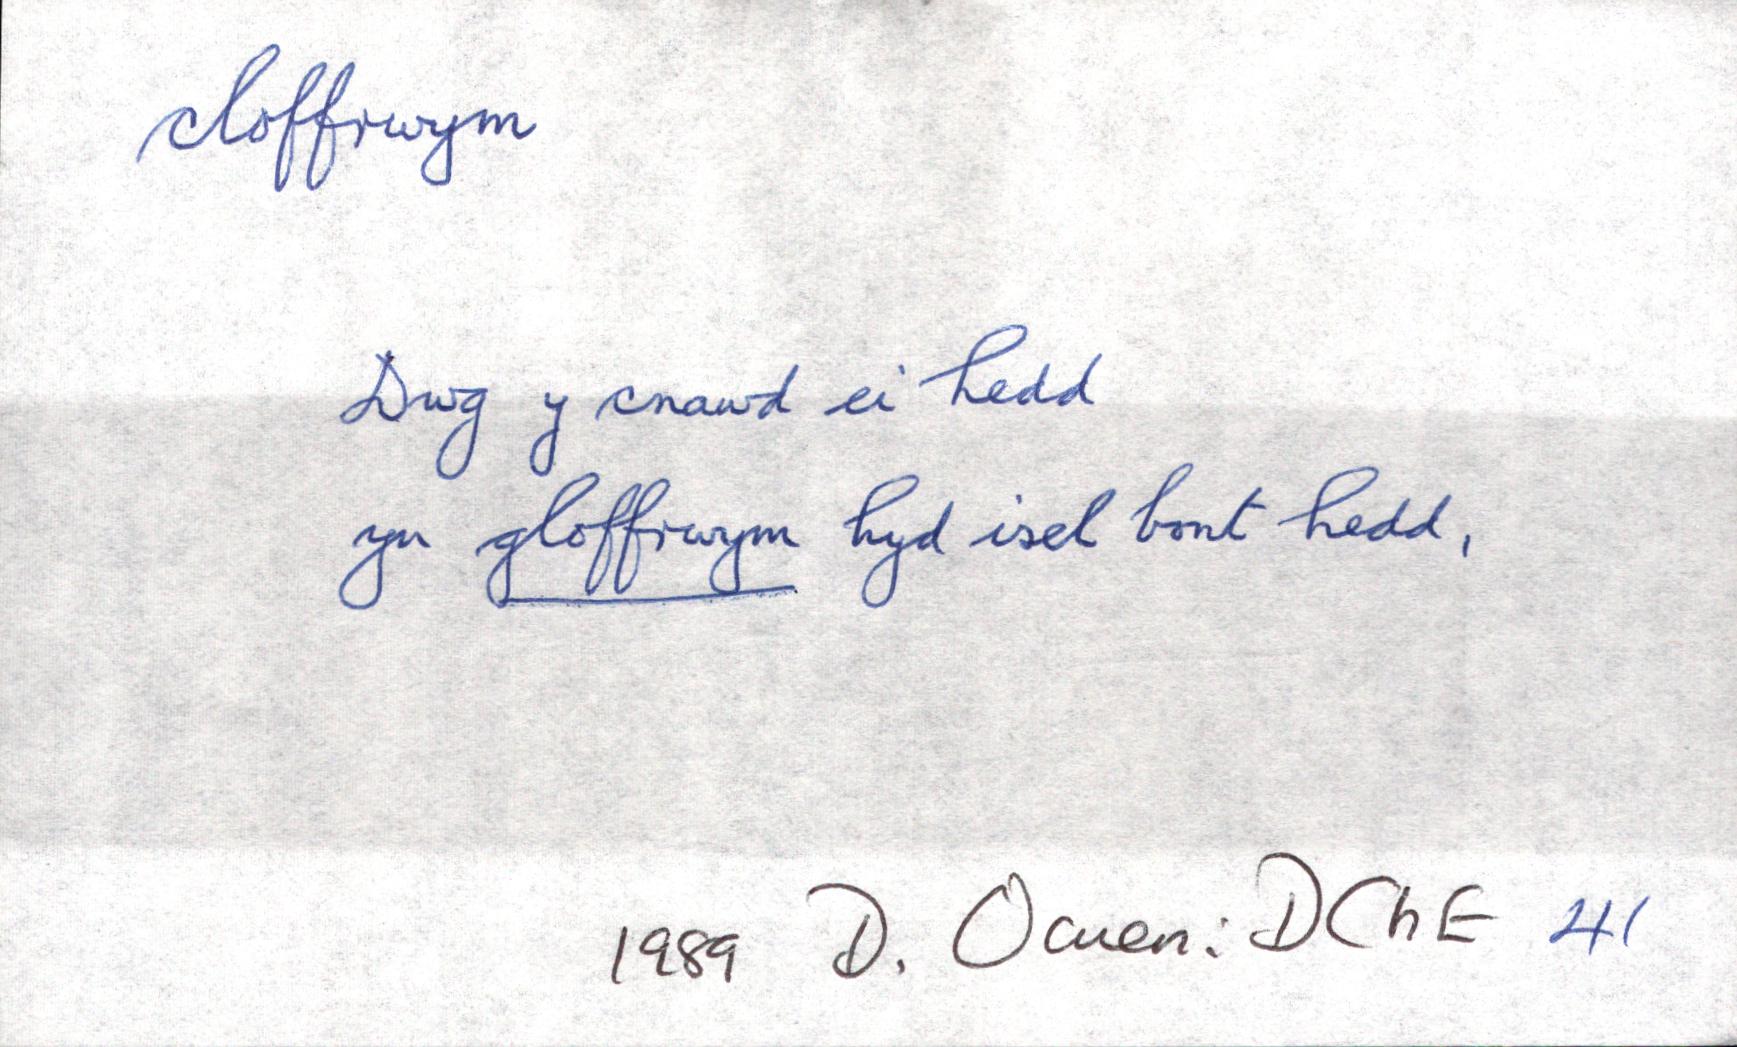 cloffrwym
Dwg y cnawd ei hedd
yn gloffrwym hyd isel bont hedd,
1989 D. Owen: DChE 41